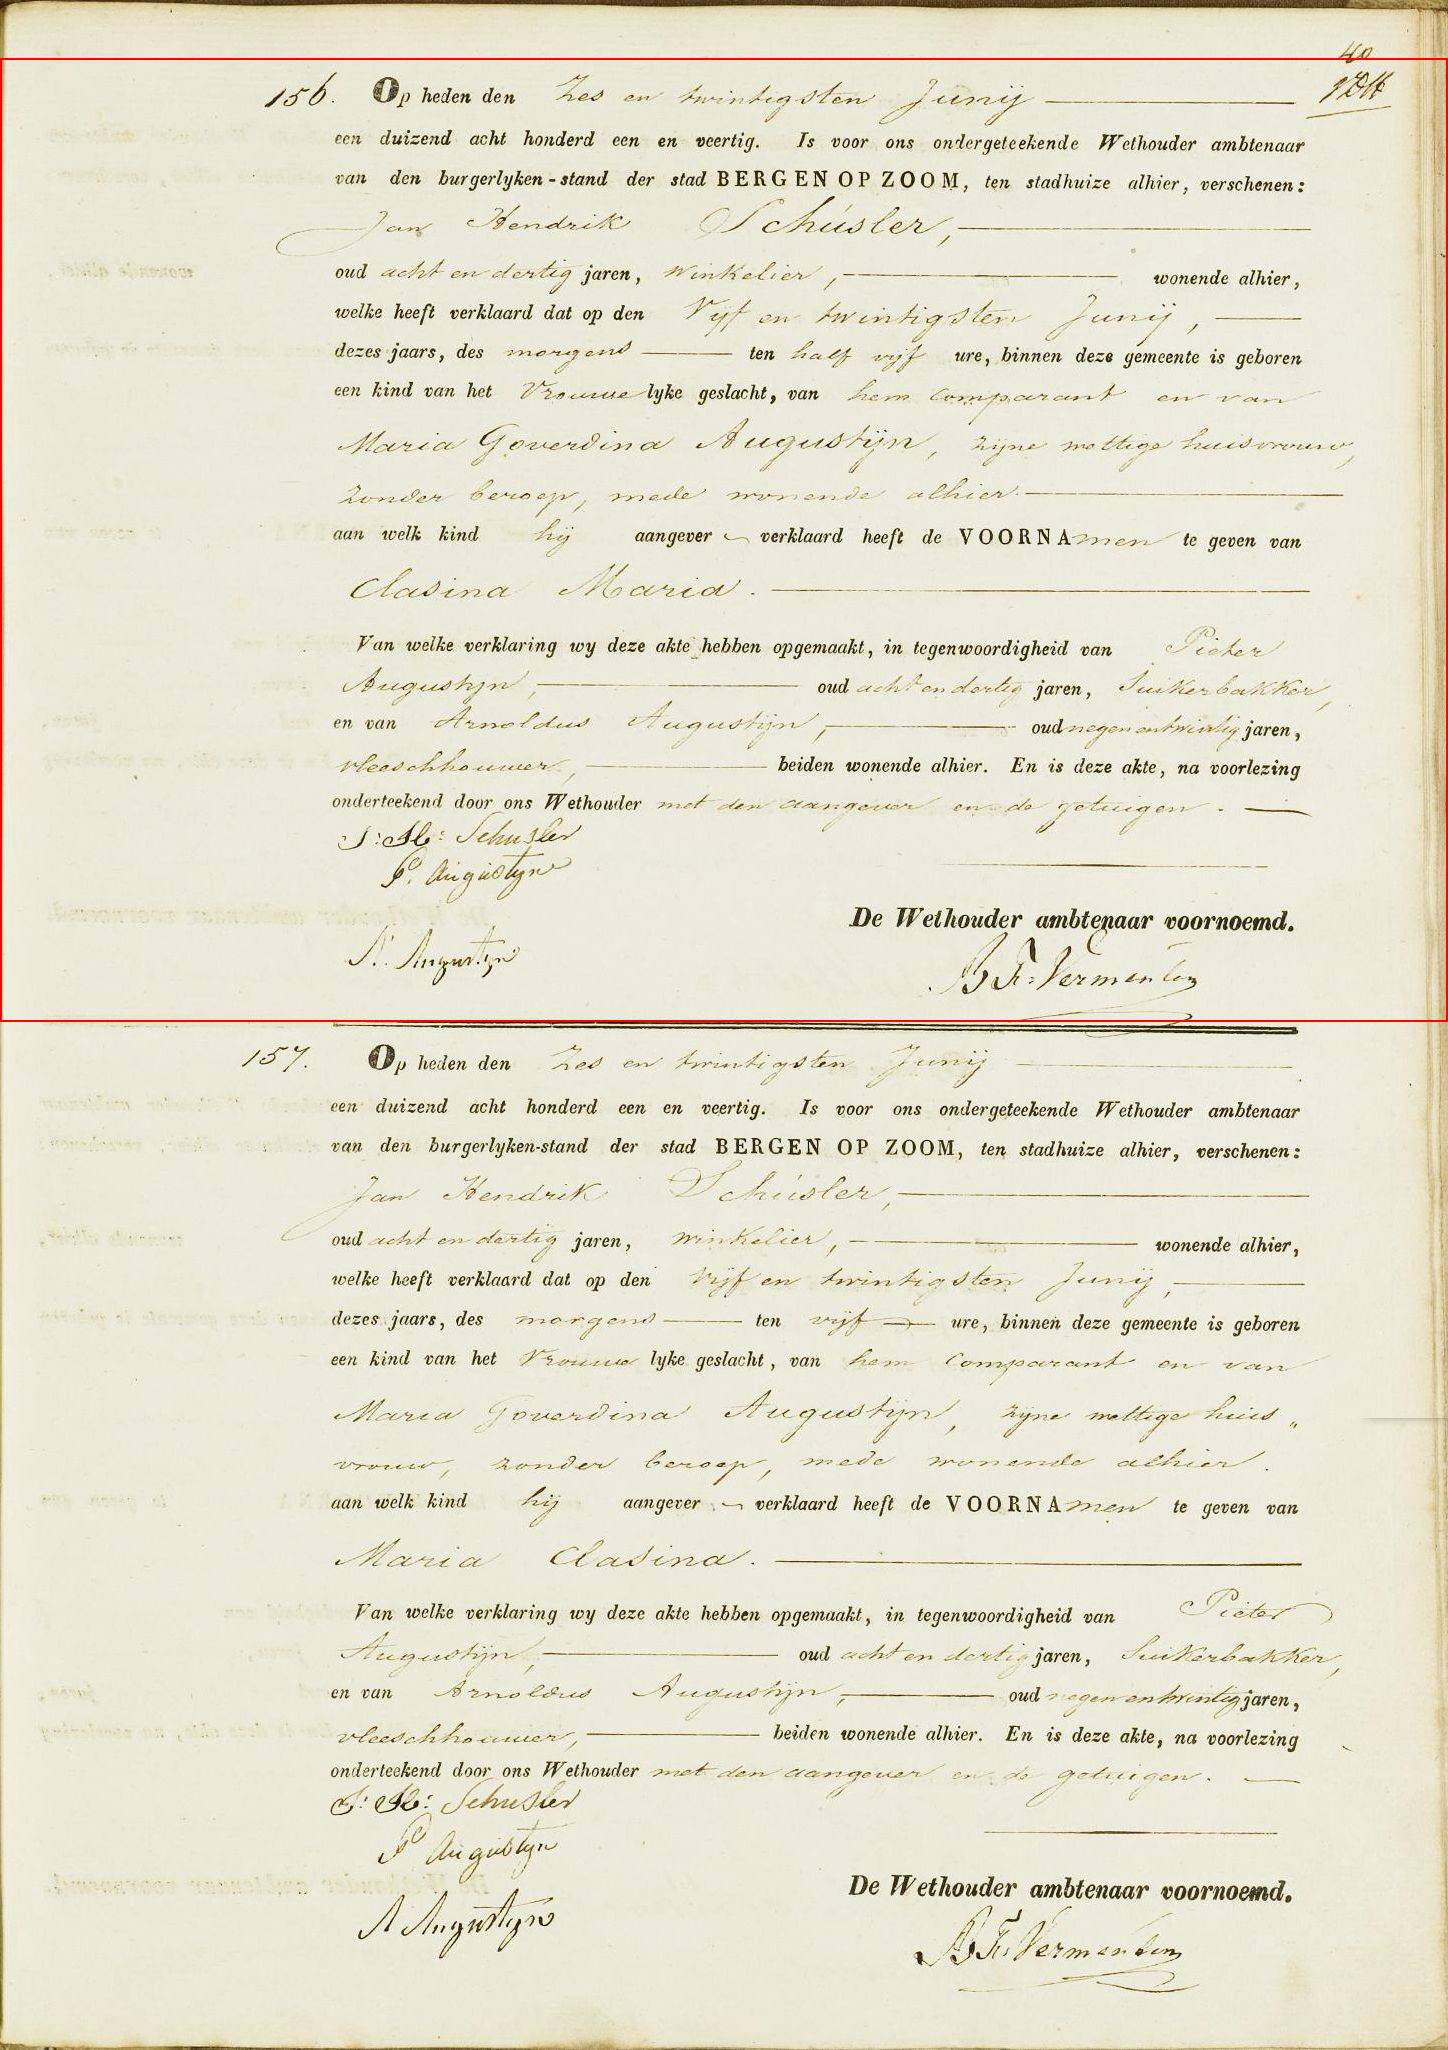 40
156. Op heden den Zes en twintigsten Junij
een duizend acht honderd een en veertig. Is voor ons ondergeteekende Wethouder ambtenaar
van den burgerlyken-stand der stad BERGEN OP ZOOM, ten stadhuize alhier, verschenen:
Jan Hendrik Schúsler,
oud acht en dertig jaren, winkelier, wonende alhier,
welke heeft verklaard dat op den Vijf en twintigsten Junij,
dezes jaars, des morgens ten half vijf ure, binnen deze gemeente is geboren
een kind van het Vrouwelyke geslacht, van hem Comparant en van
Maria Goverdina Augustijn, zijne wettige huisvrouw,
zonder beroep, mede wonende alhier.
aan welk kind hij aangever verklaard heeft de VOORNAmen te geven van
Clasina Maria.
Van welke verklaring wy deze akte hebben opgemaakt, in tegenwoordigheid van Pieter
Augustijn, oud acht en dertig jaren, Suikerbakker,
en van Arnoldus Augustijn, oud negen en twintig jaren,
vleeschhouwer, beiden wonende alhier. En is deze akte, na voorlezing
onderteekend door ons Wethouder met den aangever en de getuigen.
J: H: Schusler
P. Augustyn
De Wethouder ambtenaar voornoemd.
A. Augustyn
B Fr: Vermeulen
157. Op heden den Zes en twintigsten Junij
een duizend acht honderd een en veertig. Is voor ons ondergeteekende Wethouder ambtenaar
van den burgerlyken-stand der stad BERGEN OP ZOOM, ten stadhuize alhier, verschenen:
Jan Hendrik Schúsler,
oud acht en dertig jaren, winkelier, wonende alhier,
welke heeft verklaard dat op den Vijf en twintigsten Junij,
dezes jaars, des morgens ten vijf ure, binnen deze gemeente is geboren
een kind van het Vrouwelyke geslacht, van hem Comparant en van
Maria Goverdina Augustijn, zijne wettige huis„
vrouw, zonder beroep, mede wonende alhier.
aan welk kind hij aangever verklaard heeft de VOORNAmen te geven van
Maria Clasina.
Van welke verklaring wy deze akte hebben opgemaakt, in tegenwoordigheid van Pieter
Augustijn, oud acht en dertig jaren, Suikerbakker,
en van Arnoldus Augustijn, oud negen en twintig jaren,
vleeschhouwer, beiden wonende alhier. En is deze akte, na voorlezing
onderteekend door ons Wethouder met den aangever en de getuigen.
J: H: Schusler
P Augustyn
De Wethouder ambtenaar voornoemd.
A Augustyn
B Fr: Vermeulen